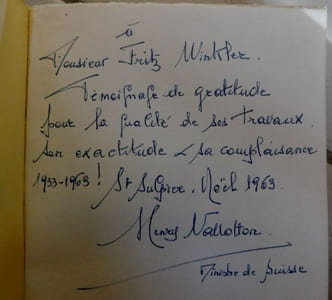 à
Monsieur Fritz Winkler.
Témoignage de gratitude
pour la qualité de ses travaux
son exactitude & sa complaisance
1933-1963! St Sulpice. Noël 1963.
Henry Vallotton.
Ministre de Suisse